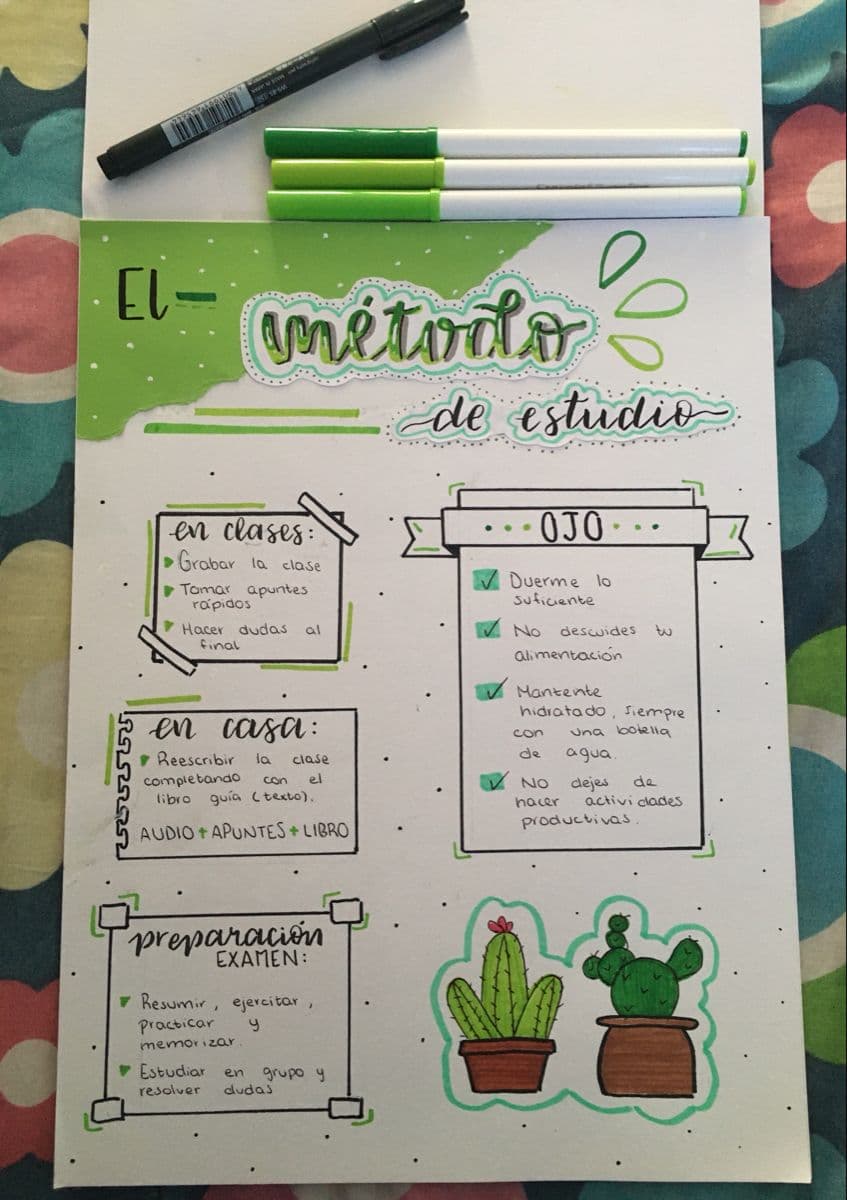 El
método
de estudio
en clases:
Grabar la clase
Tomar apuntes
rápidos
Hacer dudas al
final
en casa:
Reescribir la clase
completando con el
libro guía (texto).
AUDIO + APUNTES + LIBRO
preparación
EXAMEN:
Resumir, ejercitar,
practicar y
memorizar.
Estudiar en grupo y
resolver dudas
OJO
Duerme lo
suficiente
No descuides tu
alimentación
Mantente
hidratado, siempre
con una botella
de agua.
No dejes de
hacer actividades
productivas.